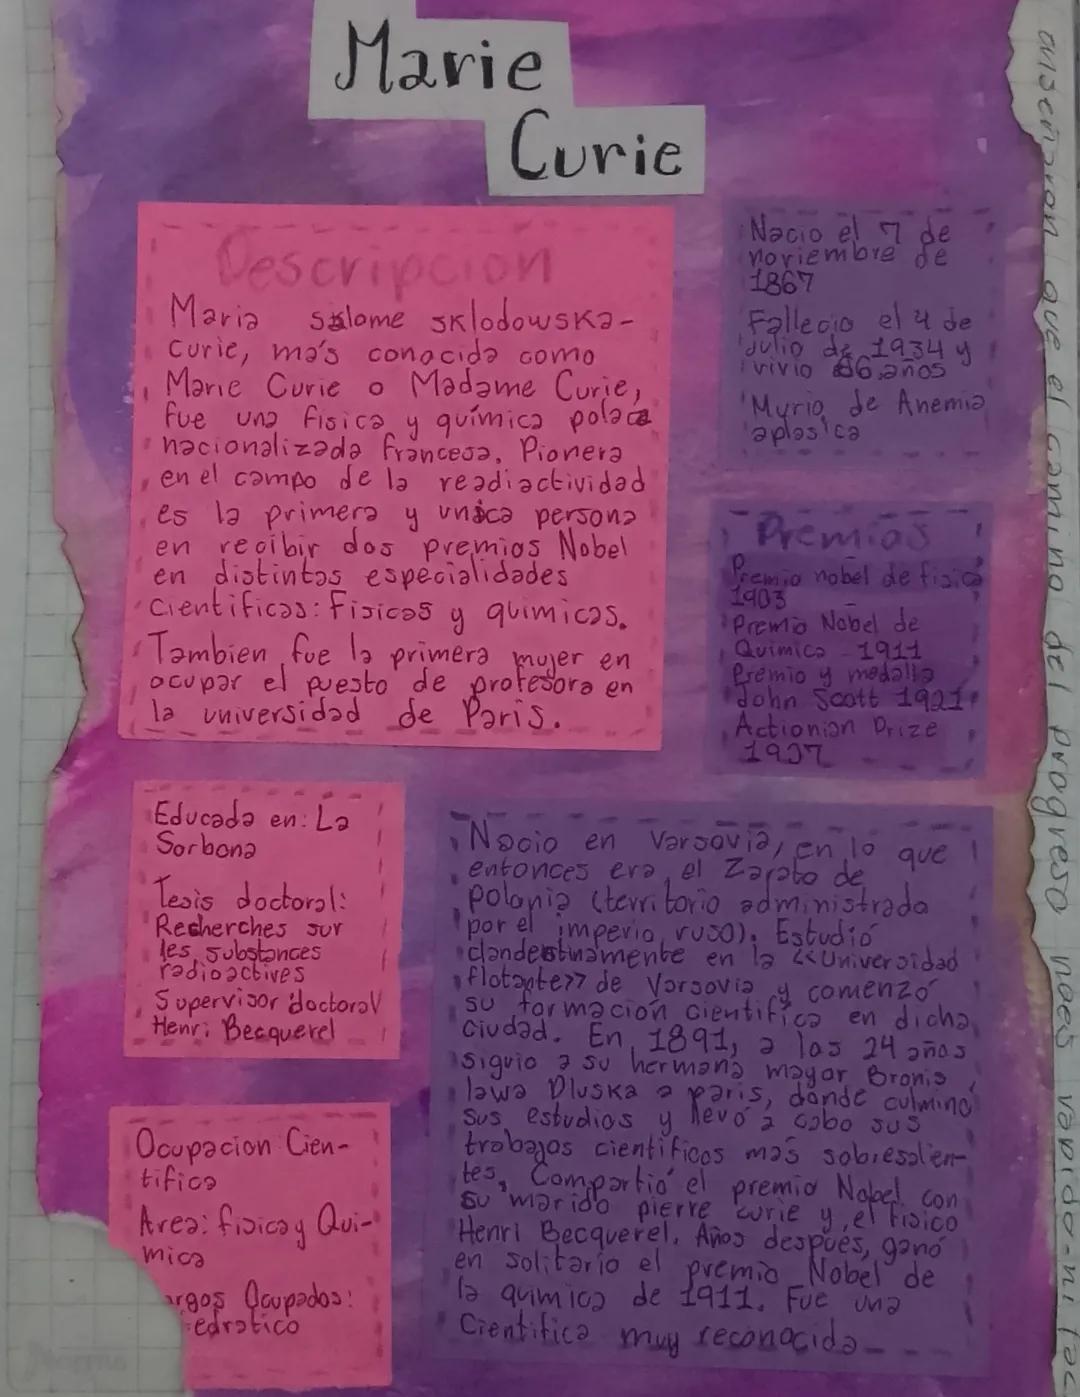 Marie
Curie
Descripcion
Maria Salome Sklodowska-
Curie, más conocida como
Marie Curie o Madame Curie,
fue una fisica y química polaca
nacionalizada francesa. Pionera
en el campo de la readiactividad
es la primera y unica persona
en recibir dos premios Nobel
en distintas especialidades
Cientificas: Fisicas y quimicas.
Tambien fue la primera mujer en
ocupar el puesto de profesora en
la universidad de Paris.
Nacio el 7 de
noviembre de
1867
Fallecio el 4 de
Julio de 1934 y
vivio 66 años
Murio de Anemia
aplasica
Premios
Premio nobel de fisica
1903
Premio Nobel de
Quimica - 1911
Premio y medalla
John Scott 1921
Actionian Prize
1907
Educada en: La
Sorbona
Tesis doctoral:
Recherches sur
les substances
radioactives
Supervisor doctoral
Henri Becquerel
Ocupacion Cien-
tifica
Area: fisica y Qui-
mica
argos Ocupados:
edratico
Nacio en Varsovia, en lo que
entonces era el Zarato de
polonia (territorio administrada
por el imperio ruso). Estudió
clandestinamente en la <<Universidad
flotante>> de Varsovia y comenzó
su formación cientifica en dicha
ciudad. En 1891, a los 24 años
siguio a su hermana mayor Bronis
lawa Dluska a paris, donde culmino
sus estudios y llevó a cabo sus
trabajos cientificos más sobresalen-
tes. Compartió el premio Nobel con
su marido pierre curie y el fisico
Henri Becquerel. Años después, ganó
en solitario el premio Nobel de
la quimica de 1911. Fue una
Cientifica muy reconocida
Norma
que el camino del progreso noes rapido-ni